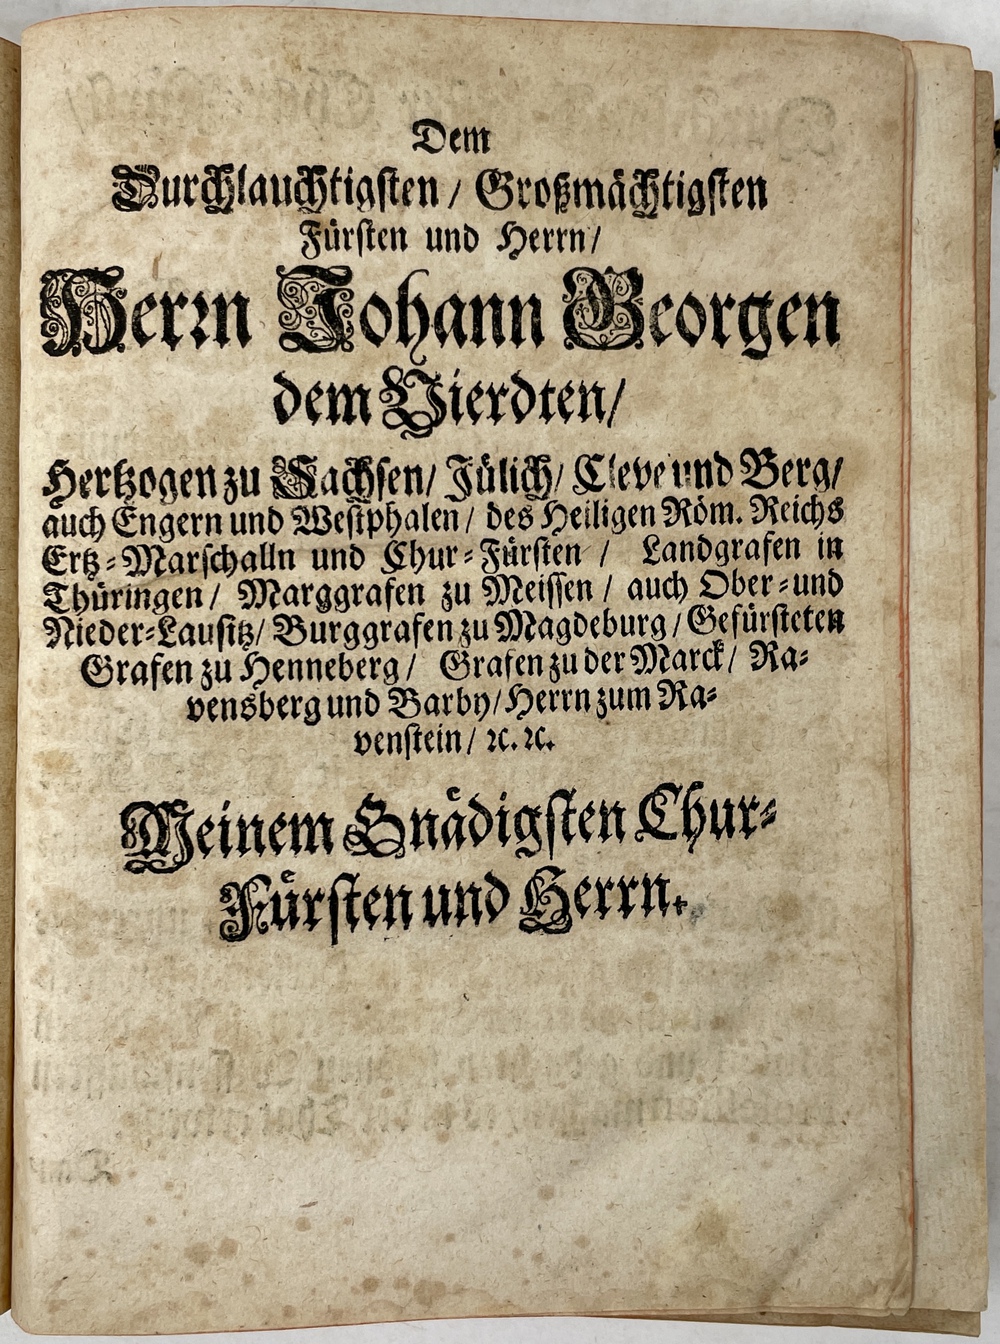 Dem
Durchlauchtigsten / Großmächtigsten
Fürsten und Herrn /
Herrn Johann Georgen
dem Vierdten /
Hertzogen zu Sachsen / Jülich / Cleve und Berg /
auch Engern und Westphalen / des Heiligen Röm. Reichs
Ertz-Marschalln und Chur-Fürsten / Landgrafen in
Thüringen / Marggrafen zu Meissen / auch Ober-und
Nieder-Lausitz / Burggrafen zu Magdeburg / Gefürsteten
Grafen zu Henneberg / Grafen zu der Marck / Ra-
vensberg und Barby / Herrn zum Ra-
venstein / ꝛc. ꝛc.
Meinem Gnädigsten Chur-
Fürsten und Herrn.